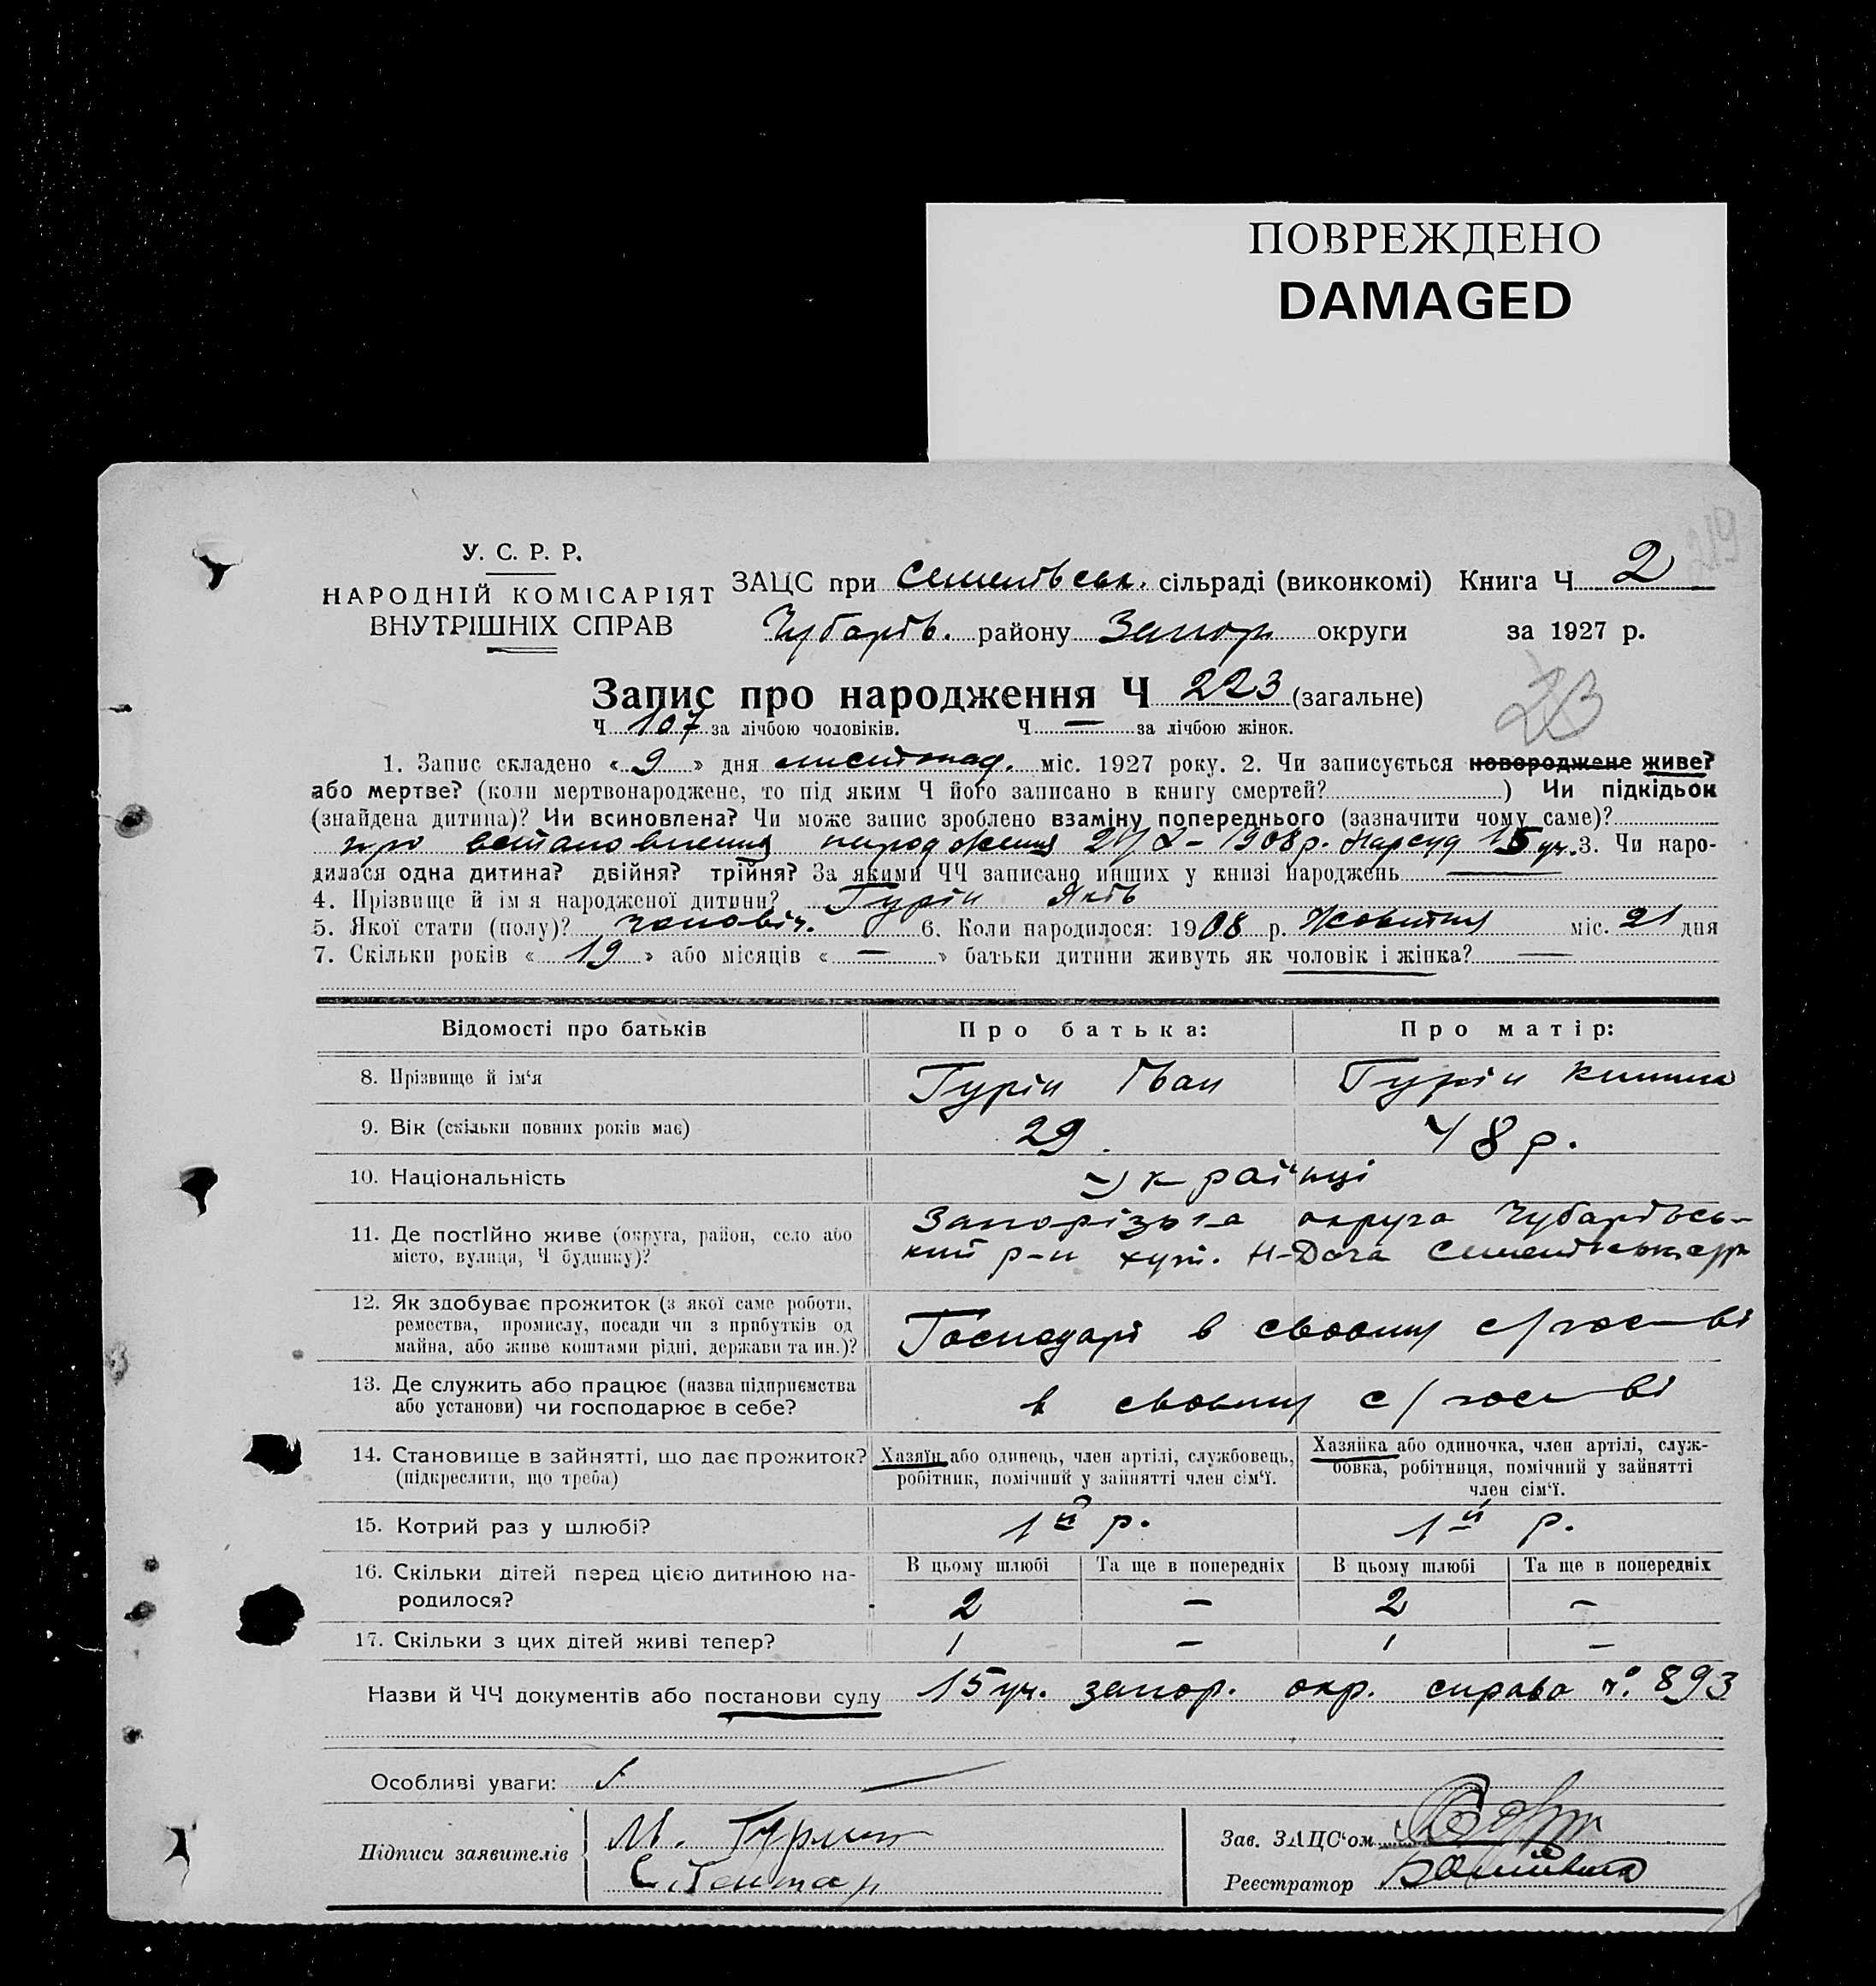 ПОВРЕЖДЕНО
DAMAGED
219
У. С. Р. Р.
НАРОДНІЙ КОМІСАРІЯТ
ВНУТРІШНІХ СПРАВ
ЗАЦС при Семенівськ. сільраді (виконкомі) Книга Ч 2
Чубарів. району Запор округи за 1927 р.
Запис про народження Ч 223 (загальне)
223
Ч 107 за лічбою чоловіків. Ч — за лічбою жінок.
1. Запис складено « 9 » дня листопад. міс. 1927 року. 2. Чи записується новороджене живе?
або мертве? (коли мертвонароджене, то під яким Ч його записано в книгу смертей? ) Чи підкідьок
(знайдена дитина)? Чи всиновлена? Чи може запис зроблено взаміну попереднього (зазначити чому саме)?
про встановлення народження 21/X – 1908 р. Нарсуд 15 уч. 3. Чи наро-
дилася одна дитина? двійня? трійня? За якими ЧЧ записано инших у книзі народжень —
4. Прізвище й ім'я народженої дитини? Гурін Яків
5. Якої стати (полу)? чоловіч. 6. Коли народилося: 1908 р. Жовтня міс. 21 дня
7. Скільки років « 19 » або місяців « — » батьки дитини живуть як чоловік і жінка? —
Відомості про батьків Про батька: Про матір:
8. Прізвище й ім'я Гурін Іван Гурін
9. Вік (скільки повних років має) 29 48 р.
10. Національність Українці
11. Де постійно живе (округа, район, село або Запорізька округа Чубарівсь-
місто, вулиця, Ч будинку)? кий р-н хут. Н-Дача
12. Як здобуває прожиток (з якої саме роботи,
ремества, промислу, посади чи з прибутків од Господарі в своему с/гос-ві
майна, або живе коштами рідні, держави та ин.)?
13. Де служить або працює (назва підприємства
або установи) чи господарює в себе? в своему с/гос-ві
14. Становище в зайнятті, що дає прожиток? Хазяїн або одинець, член артілі, службовець, Хазяйка або одиночка, член артілі, служ-
(підкреслити, що треба) робітник, помічний у зайнятті член сім'ї. бовка, робітниця, помічний у зайнятті
член сім'ї.
15. Котрий раз у шлюбі? 1й р. 1й р.
16. Скільки дітей перед цією дитиною на- В цьому шлюбі Та ще в попередніх В цьому шлюбі Та ще в попередніх
родилося? 2 — 2 —
17. Скільки з цих дітей живі тепер? 1 — 1 —
Назви й ЧЧ документів або постанови суду 15 уч. запор. окр. справа ч. 893
Особливі уваги: —
Підписи заявителів
Зав. ЗАЦС'ом
Реєстратор